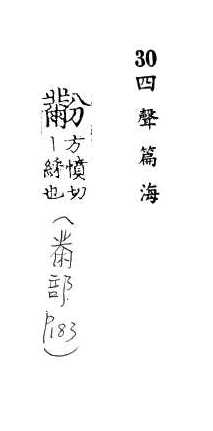 30 四聲篇海
黺
方憤切
丨綵也
(黹部 P183)